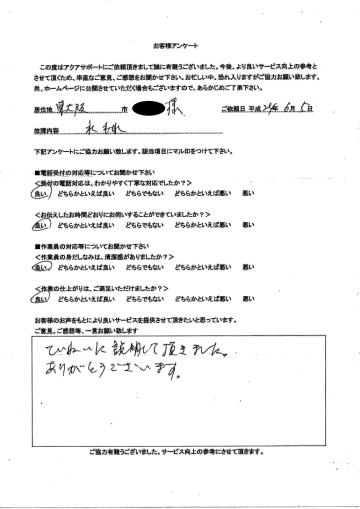 お客様アンケート
この度はアクアサポートにご依頼頂きまして誠に有難うございました。今後、より良いサービス向上の参考と
させて頂くため、率直なご意見、ご感想をお聞かせ下さい。お忙しい中、恐れ入りますがご協力お願い致します。
尚、ホームページに公開させていただく場合もございますので、あらかじめご了承下さい。
居住地 東大阪 市 様 ご依頼日 平成 24年 6月 5日
故障内容 水もれ
下記アンケートにご協力お願い致します。該当項目にマル印をつけて下さい。
■電話受付の対応等についてお聞かせ下さい
<受付の電話対応は、わかりやすく丁寧な対応でしたか?>
良い どちらかといえば良い どちらでもない どちらかといえば悪い 悪い
<お伝えしたお時間どおりにお伺いすることができていましたか?>
良い どちらかといえば良い どちらでもない どちらかといえば悪い 悪い
■作業員の対応等についてお聞かせ下さい
<作業員の身だしなみは、清潔感がありましたか?>
良い どちらかといえば良い どちらでもない どちらかといえば悪い 悪い
<作業の仕上がりは、ご満足いただけましたか?>
良い どちらかといえば良い どちらでもない どちらかといえば悪い 悪い
お客様のお声をもとにより良いサービスを提供させて頂きたいと思っています。
ご意見、ご感想等、一言お願い致します
ていねいに説明して頂きました。
ありがとうございます。
ご協力有難うございました。サービス向上の参考にさせて頂きます。